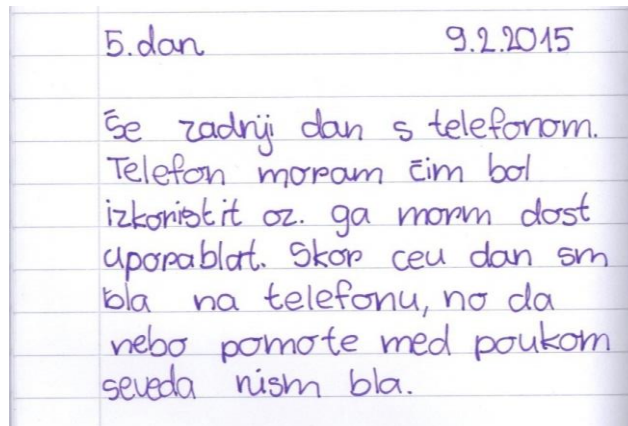 5. dan 9.2.2015
Še zadnji dan s telefonom.
Telefon moram čim bol
izkoristit oz. ga morm dost
uporablat. Skor ceu dan sm
bla na telefonu, no da
nebo pomote med poukom
seveda nism bla.